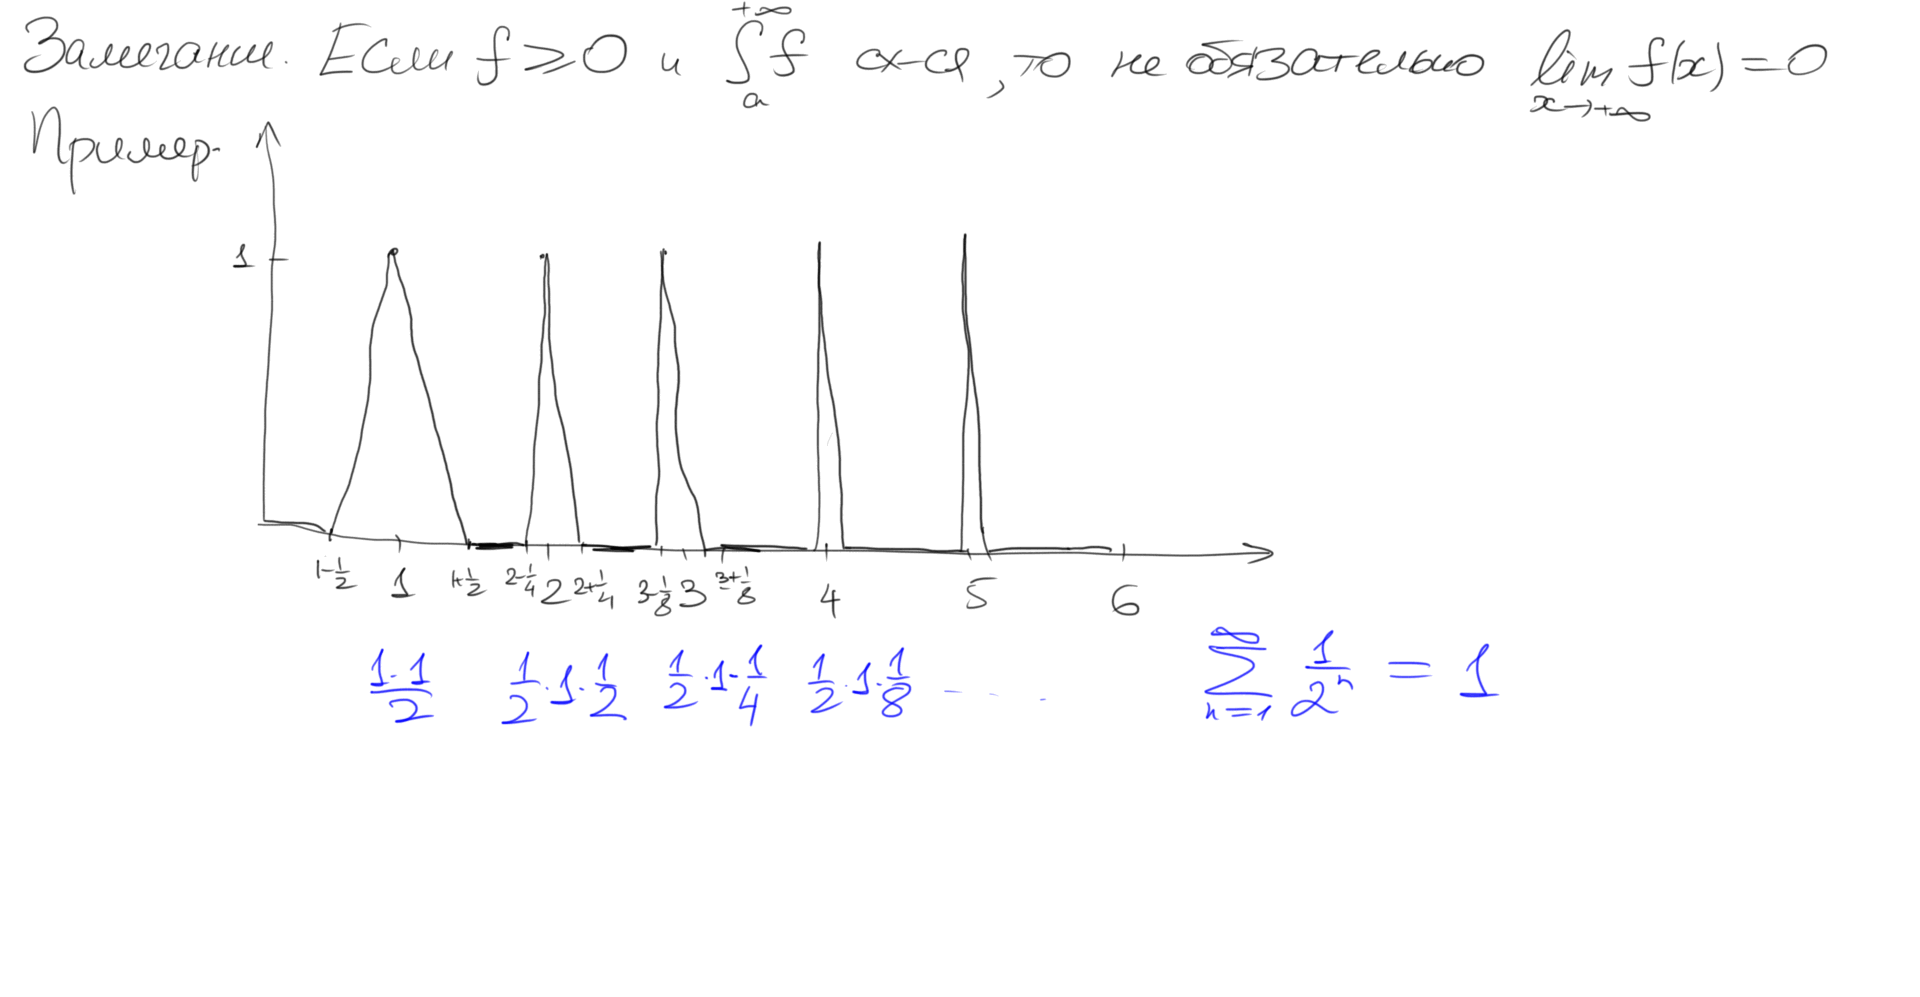 Замечание. Если f ⩾ 0 и ∫_a^{+∞} f сх-ся, то не обязательно lim_{x→+∞} f(x) = 0
Пример.
1
1-1/2 1 1+1/2 2-1/4 2 2+1/4 3-1/8 3 3+1/8 4 5 6
1·1/2 1/2·1·1/2 1/2·1·1/4 1/2·1·1/8 - - - . ∑_{n=1}^{∞} 1/2^n = 1